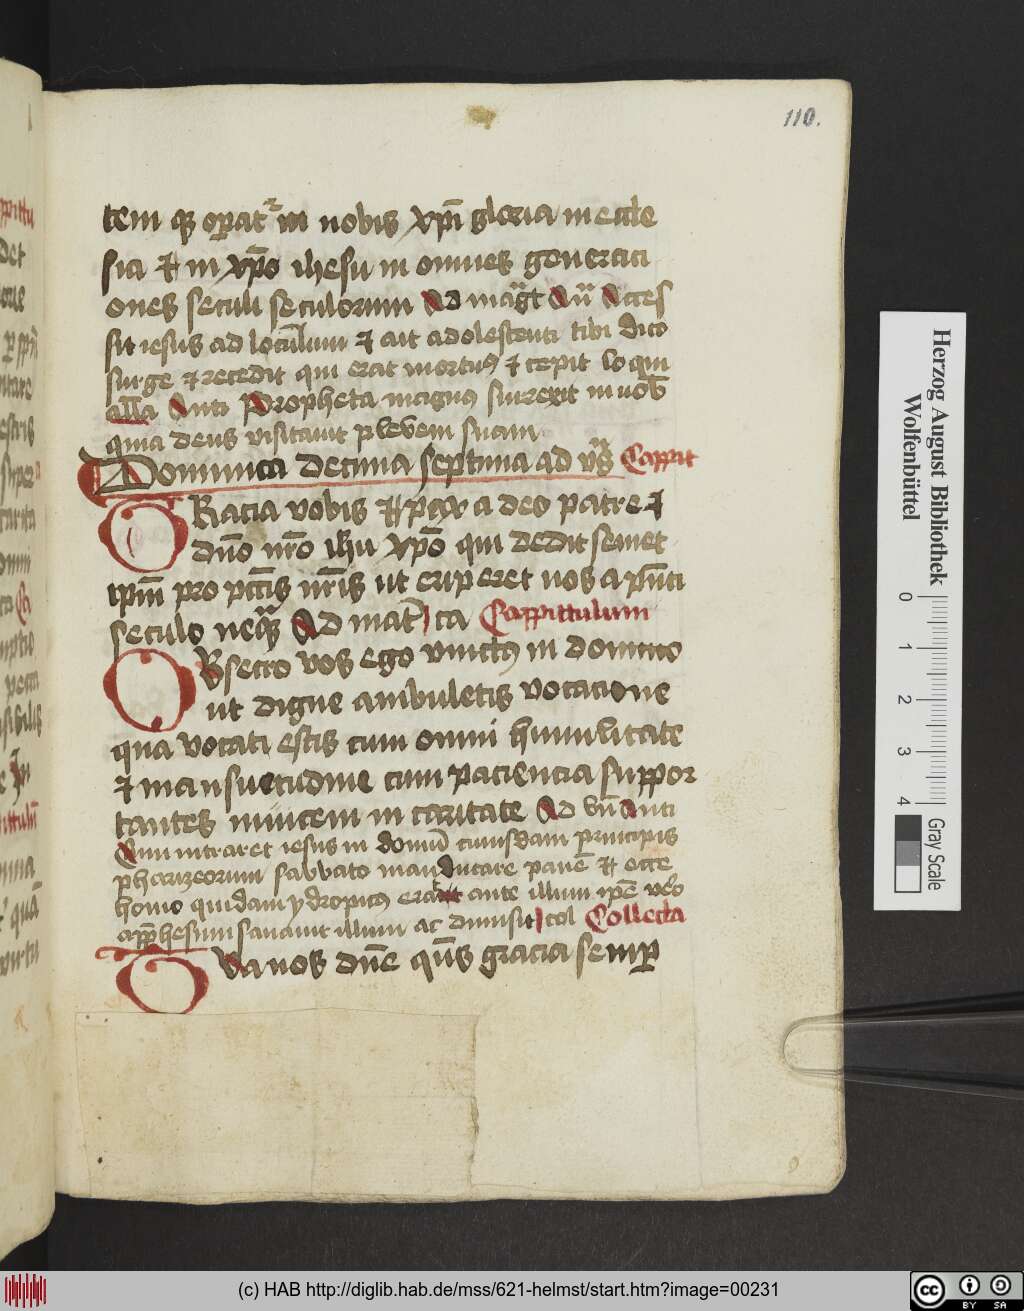 110.
tem q̃ operat᷑ in nobis xp̄i gloria in eccle
sia et in xp̄o ihesu in omnes generaci
ones seculi seculorum Ad mag̃t An̄ Acces
sit iesus ad loculum et ait adolescenti tibi dico
surge et recedit qui erat mortuꝰ et cepit loqui
all̄a Anti Propheta magnꝰ surrexit in nob̄
quia deus visitauit plebem suam
Dominica decima septima ad vr̃s Cappit
GRacia vobis et pax a deo patre et
dn̄o nr̄o ihu xp̄o qui dedit semet
ip̄m pro pcc̄is nr̄is ut eriperet nos a pn̄ti
seculo neq̃ Ad mat᷑ ca Cappittulum
OBsecro vos ego vinctꝰ in domino
ut digne ambuletis vocacione
qua vocati estis cum omni humilitate
et mansuetudine cum paciencia suppor
tantes inuicem in caritate Ad vn̄ Anti
Cum intraret iesus in domū cuiusdam principis
pharizeorum sabbato manducare panē et ecce
homo quidam ydropicꝰ erat ante illum ipē vero
apphesum sanauit illum ac dimisit col Collecta
TUa nos dn̄e qūs gracia semp
Herzog August Bibliothek
Wolfenbüttel
0 1 2 3 4
Gray Scale
(c) HAB http://diglib.hab.de/mss/621-helmst/start.htm?image=00231
cc BY SA